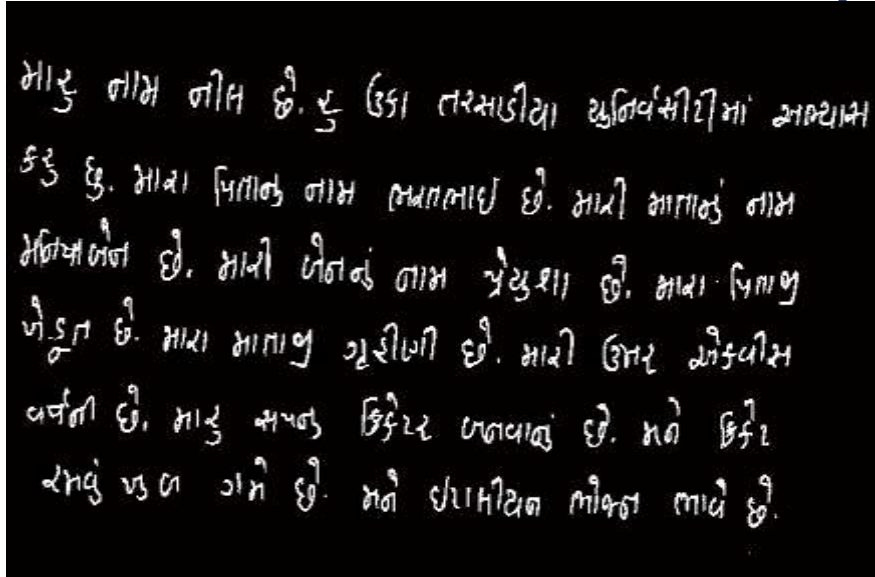 મારુ નામ નીલ છે. હુ ઉકા તરસાડીયા યુનિર્વસીટીમાં અભ્યાસ
કરુ છુ. મારા પિતાનુ નામ ભરતભાઇ છે. મારી માતાનું નામ
છે. મારી બેનનું નામ છે. મારા પિતાજી
ખેડૂત છે. મારા માતાજી ગૃહીણી છે. મારી ઉમર એકવીસ
વર્ષની છે. મારુ સપનુ ક્રિકેટર બનવાનું છે. મને ક્રિકેટ
રમવું ખુબ ગમે છે. મને ઇટાલીયન ભોજન ભાવે છે.